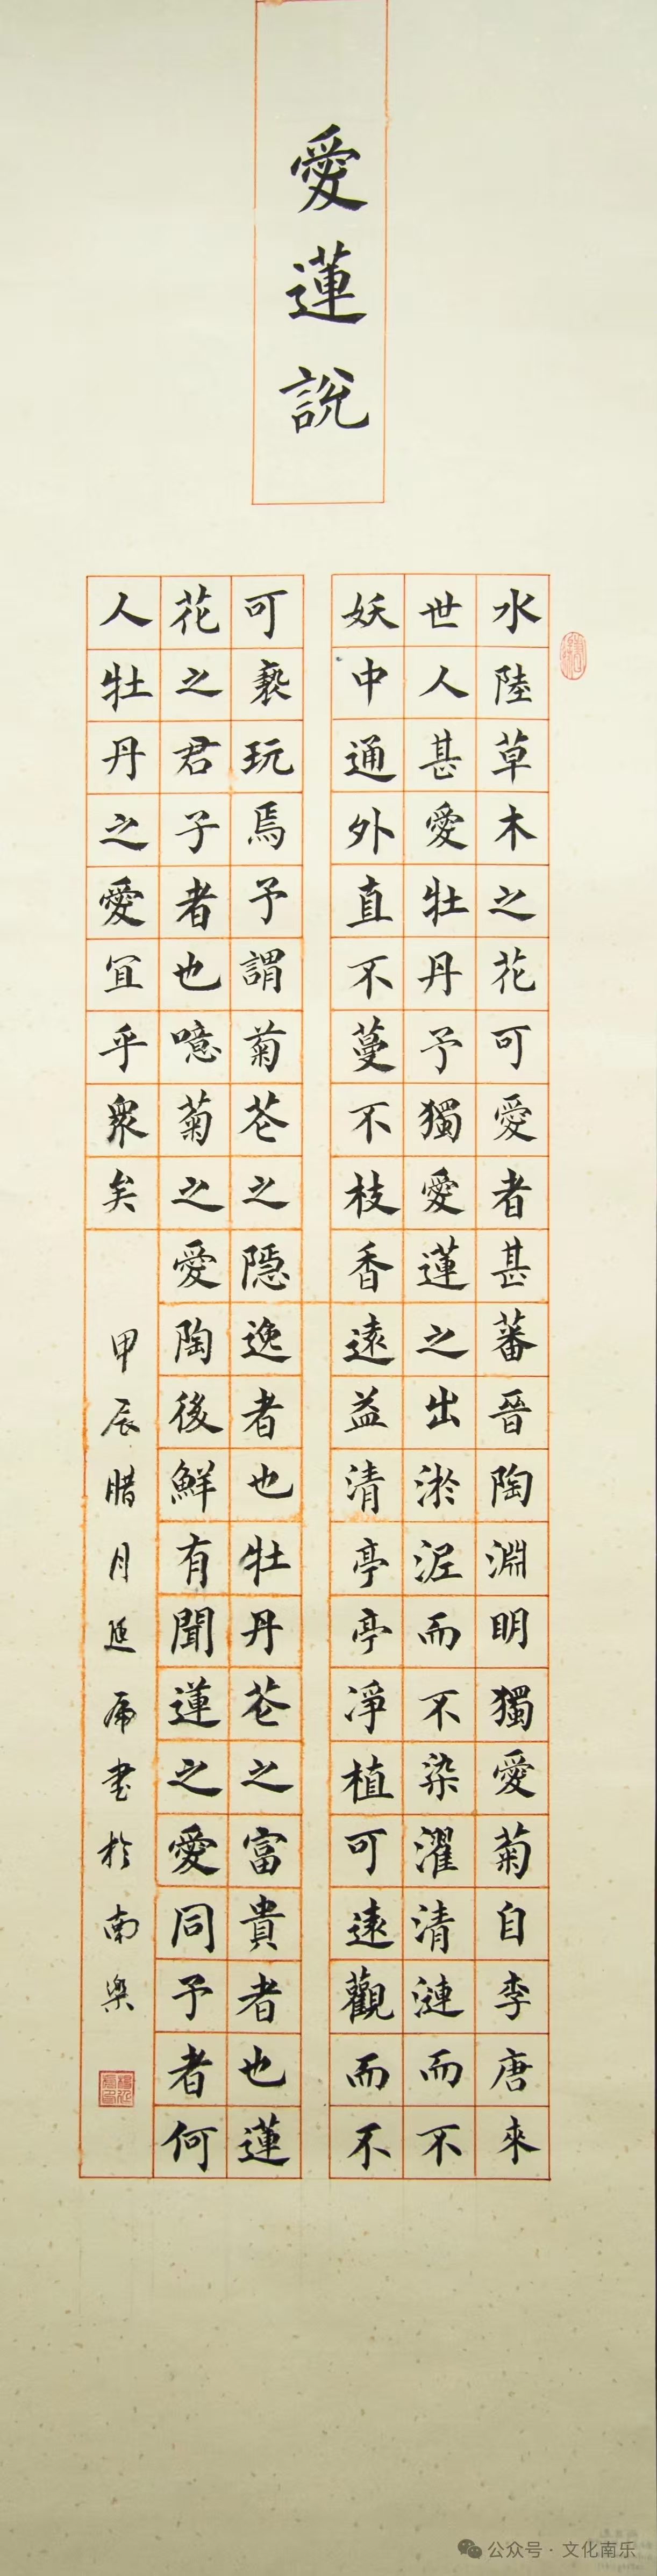 愛蓮說
水陸草木之花可愛者甚蕃晉陶淵明獨愛菊自李唐來
世人甚愛牡丹予獨愛蓮之出淤泥而不染濯清漣而不
妖中通外直不蔓不枝香遠益清亭亭凈植可遠觀而不
可褻玩焉予謂菊花之隱逸者也牡丹花之富貴者也蓮
花之君子者也噫菊之愛陶後鮮有聞蓮之愛同予者何
人牡丹之愛宜乎衆矣
甲辰腊月延席書於南樂
公众号·文化南乐